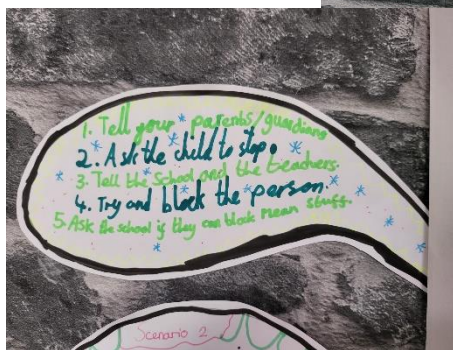 1. Tell your parents/guardians
2. Ask the child to stop.
3. Tell the School and the teachers.
4. Try and block the person.
5. Ask the school is they can block mean stuff.
Scenario 2